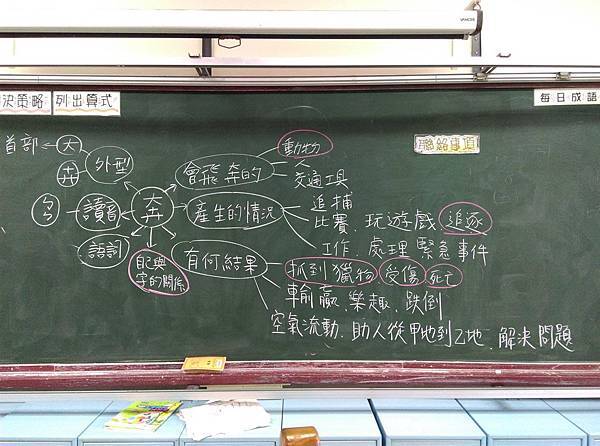 決策略 列出算式
每日成語
聯絡事項
首部 大 外型
卉
ㄅㄣ 讀音
語詞
奔
自己與字的關係
會飛奔的 動物
人
交通工具
產生的情況 追捕
比賽、玩遊戲 追逐
工作、處理緊急事件
有何結果 抓到獵物 受傷 死亡
輸贏、樂趣、跌倒
空氣流動、助人從甲地到乙地、解決問題